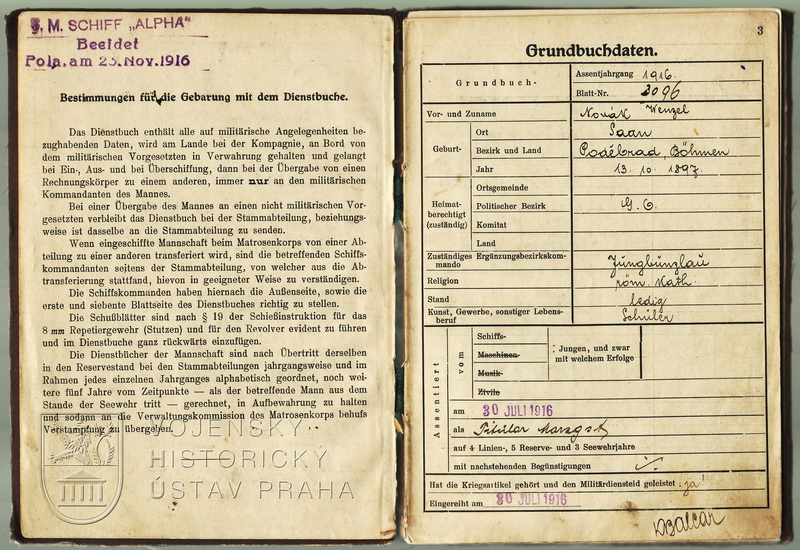 S. M. SCHIFF „ALPHA“
Beeidet
Pola, am 23. Nov. 1916
Bestimmungen für die Gebarung mit dem Dienstbuche.
Das Dienstbuch enthält alle auf militärische Angelegenheiten be-
zughabenden Daten, wird am Lande bei der Kompagnie, an Bord von
dem militärischen Vorgesetzten in Verwahrung gehalten und gelangt
bei Ein-, Aus- und bei Überschiffung, dann bei der Übergabe von einen
Rechnungskörper zu einem anderen, immer nur an den militärischen
Kommandanten des Mannes.
Bei einer Übergabe des Mannes an einen nicht militärischen Vor-
gesetzten verbleibt das Dienstbuch bei der Stammabteilung, beziehungs-
weise ist dasselbe an die Stammabteilung zu senden.
Wenn eingeschiffte Mannschaft beim Matrosenkorps von einer Ab-
teilung zu einer anderen transferiert wird, sind die betreffenden Schiffs-
kommandanten seitens der Stammabteilung, von welcher aus die Ab-
transferierung stattfand, hievon in geeigneter Weise zu verständigen.
Die Schiffskommanden haben hiernach die Außenseite, sowie die
erste und siebente Blattseite des Dienstbuches richtig zu stellen.
Die Schußblätter sind nach § 19 der Schießinstruktion für das
8 mm Repetiergewehr (Stutzen) und für den Revolver evident zu führen
und im Dienstbuche ganz rückwärts einzufügen.
Die Dienstbücher der Mannschaft sind nach Übertritt derselben
in den Reservestand bei den Stammabteilungen jahrgangsweise und im
Rahmen jedes einzelnen Jahrganges alphabetisch geordnet, noch wei-
tere fünf Jahre vom Zeitpunkte — als der betreffende Mann aus dem
Stande der Seewehr tritt — gerechnet, in Aufbewahrung zu halten
und sodann an die Verwaltungskommission des Matrosenkorps behufs
Verstampfung zu übergeben.
VOJENSKÝ
HISTORICKÝ
ÚSTAV PRAHA
3
Grundbuchdaten.
Grundbuch-
Assentjahrgang 1916.
Blatt-Nr. 3096
Vor- und Zuname Novák Wenzel
Geburt-
Ort Saan
Bezirk und Land Poděbrad, Böhmen
Jahr 13. 10. 1897.
Heimat-
berechtigt
(zuständig)
Ortsgemeinde
Politischer Bezirk G. G.
Komitat
Land
Zuständiges Ergänzungsbezirkskom-
mando Jungbunzlau
Religion röm. Kath.
Stand ledig
Kunst, Gewerbe, sonstiger Lebens-
beruf Schüler
Assentiert
vom
Schiffs-
Maschinen-
Musik-
Zivile
Jungen, und zwar
mit welchem Erfolge
am 30 JULI 1916
als Titular
auf 4 Linien-, 5 Reserve- und 3 Seewehrjahre
mit nachstehenden Begünstigungen
Hat die Kriegsartikel gehört und den Militärdiensteid geleistet ja
Eingereiht am 30 JULI 1916